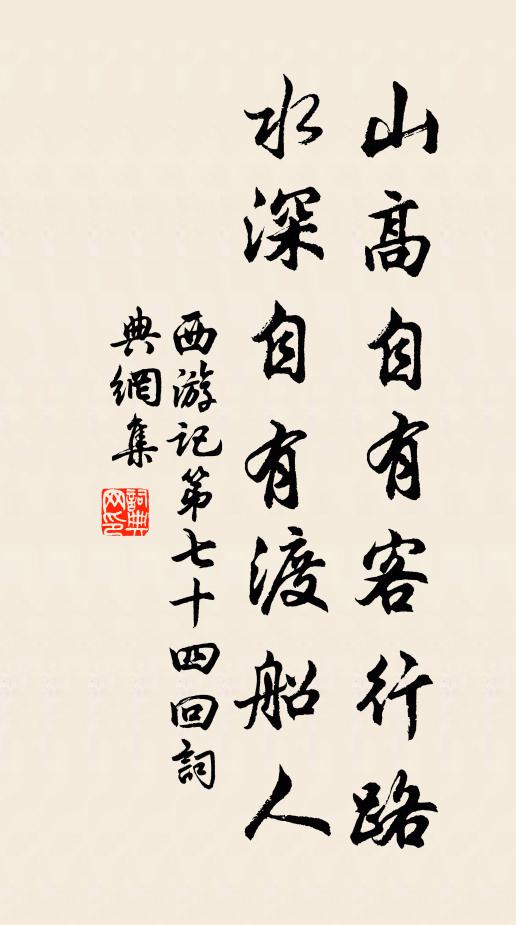 山高自有客行路
水深自有渡船人
西游记第七十四回詞
典網集
詞典網印